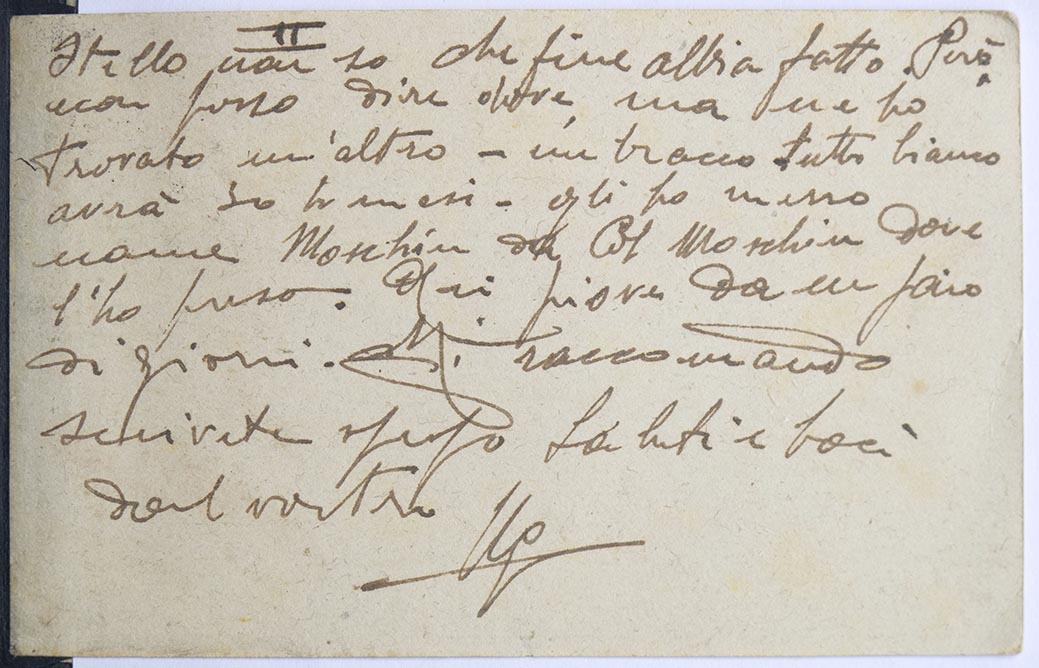 II
Stello non so che fine abbia fatto. Però
non posso dire dove, ma ne ho
trovato un'altro - un bracco tutto bianco
avrà 3 o tre mesi - gli ho messo
nome Moschin da Col Moschin dove
l'ho preso. Qui piove da un paio
di giorni. Mi raccomando
scrivete spesso Saluti e baci
dal vostro